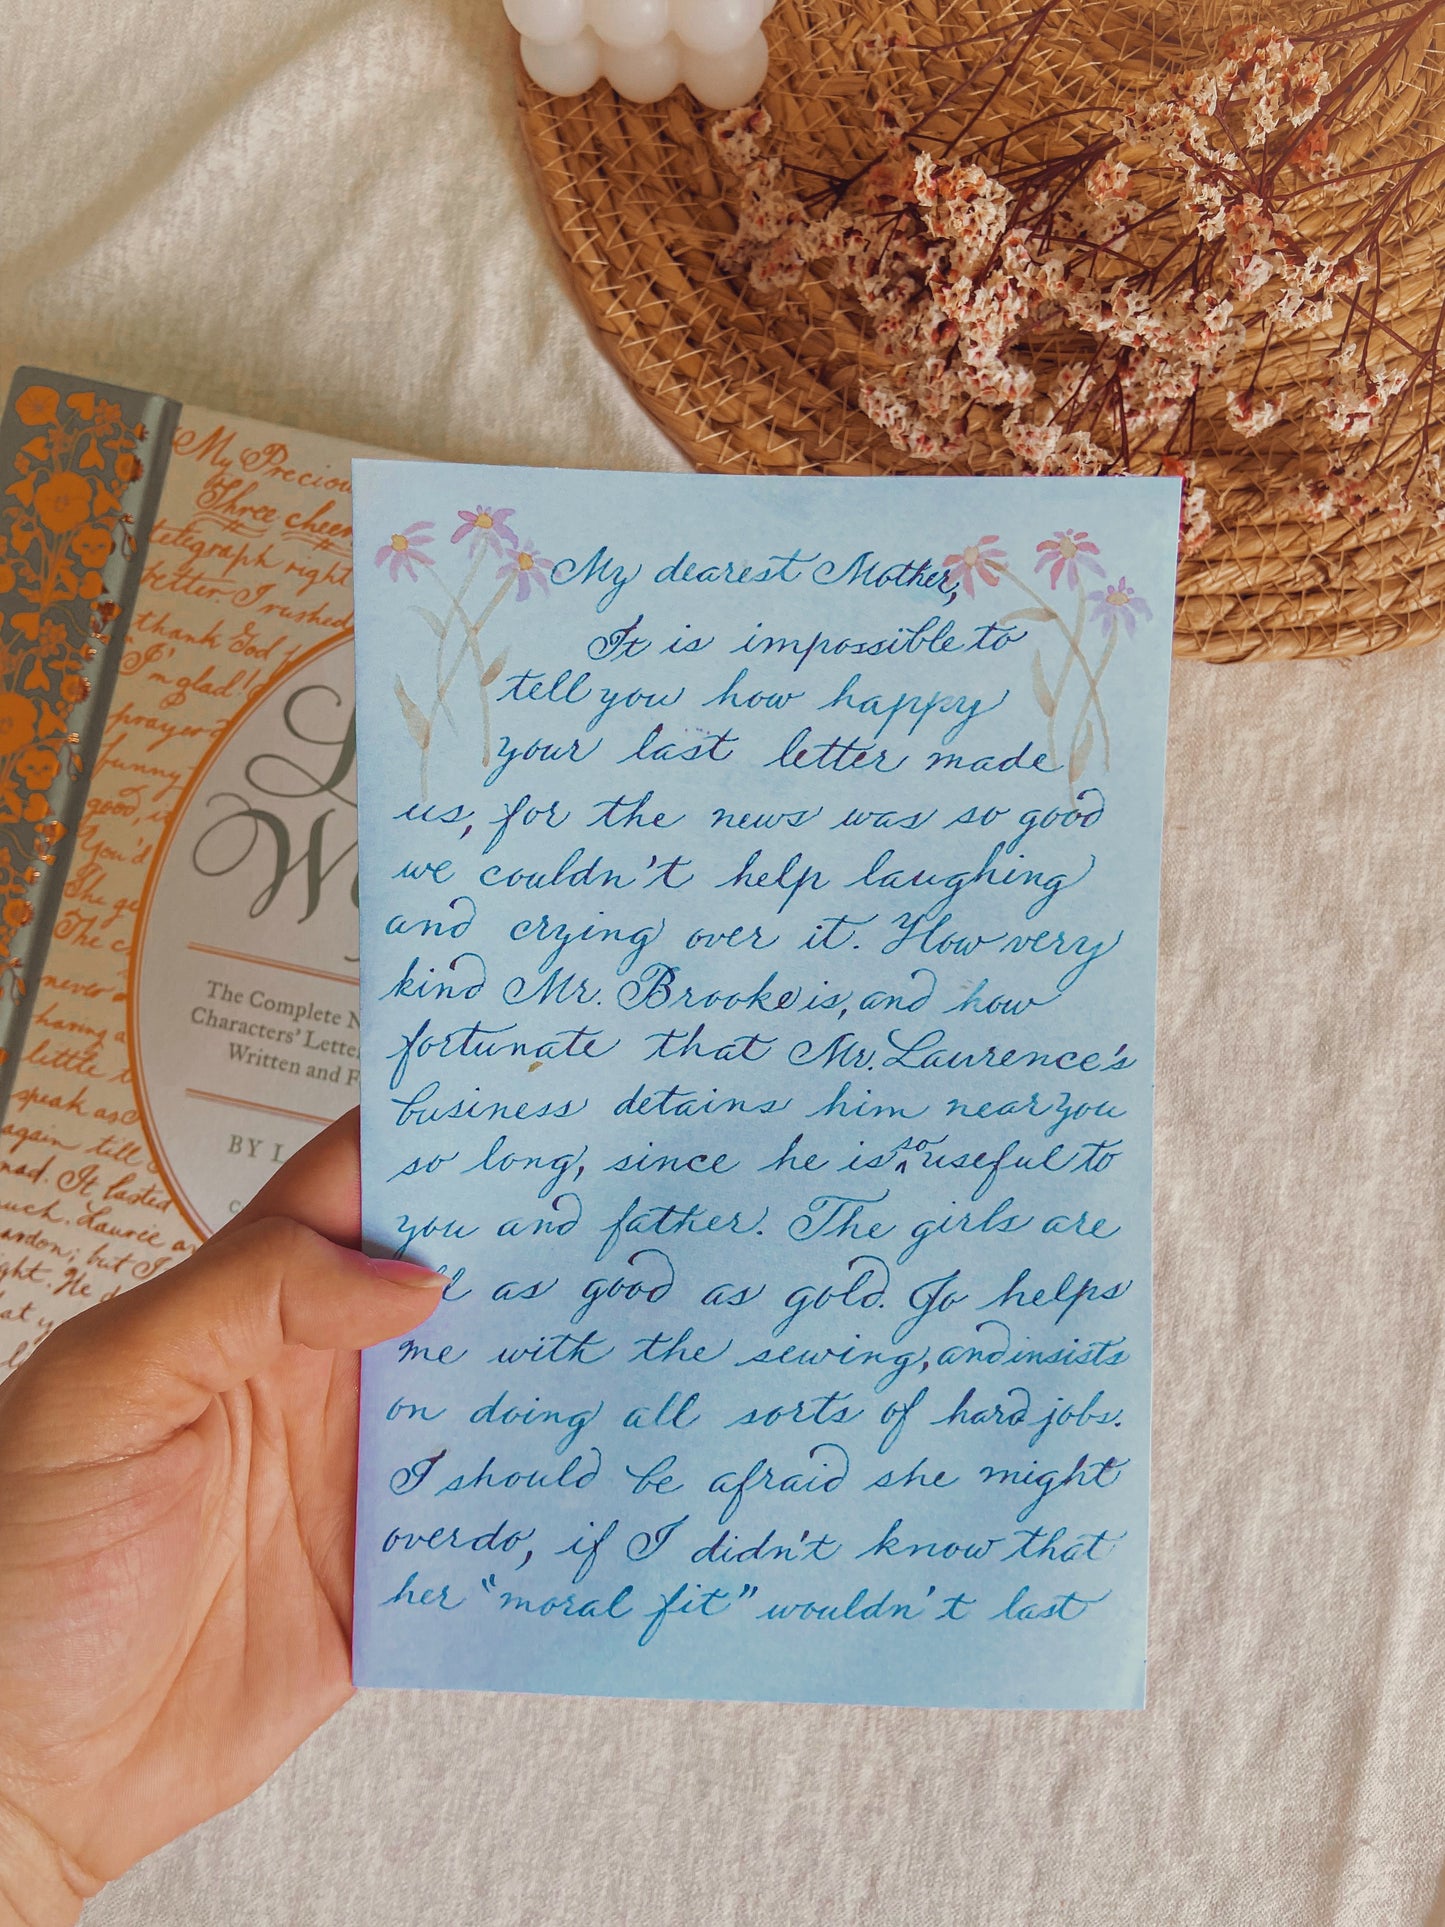 My Precious
Three cheers
telegraph right
better. I rushed
thank God
I'm glad!
prayer?
funny
good,
You'd
The
The
never
having a
little
speak
again till
mad. It lasted
much. Laurie
pardon; but I
He
The Complete
Characters' Letter
Written and
BY L
My dearest Mother,
It is impossible to
tell you how happy
your last letter made
us, for the news was so good
we couldn't help laughing
and crying over it. How very
kind Mr. Brooke is, and how
fortunate that Mr. Laurence's
business detains him near you
so long, since he is so useful to
you and father. The girls are
as good as gold. Jo helps
me with the sewing, and insists
on doing all sorts of hard jobs.
I should be afraid she might
overdo, if I didn't know that
her "moral fit" wouldn't last